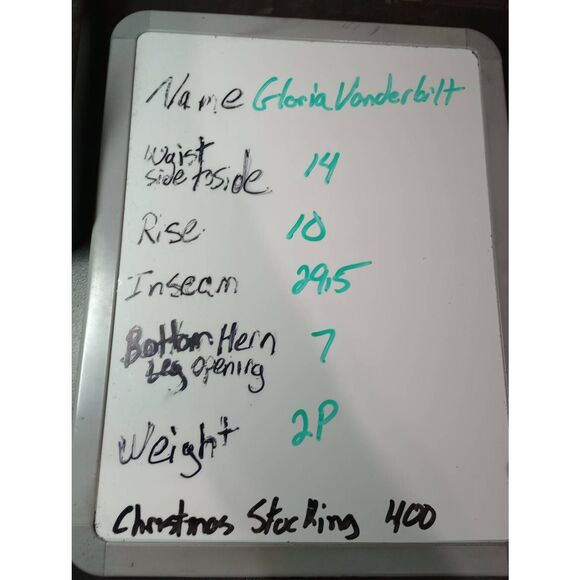 Name Gloria Vanderbilt
Waist
side to side 14
Rise 10
Inseam 29.5
Bottom Hem 7
Leg Opening
Weight 2P
Christmas Stocking 400